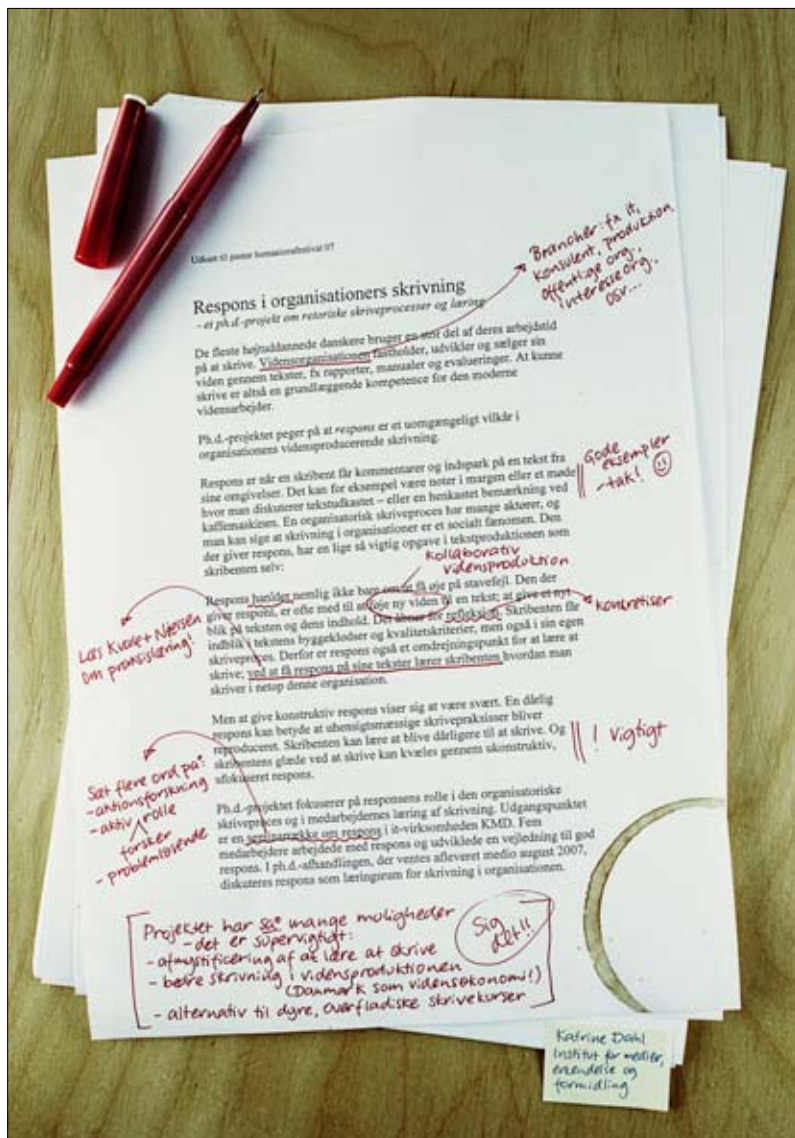 Udkast til poster humaniorafestival 07
Brancher: fx it,
konsulent, produktion
offentlige org.,
interesseorg.,
osv...
Respons i organisationers skrivning
– et ph.d.-projekt om retoriske skriveprocesser og læring
De fleste højtuddannede danskere bruger en stor del af deres arbejdstid
på at skrive. Vidensorganisationen fastholder, udvikler og sælger sin
viden gennem tekster, fx rapporter, manualer og evalueringer. At kunne
skrive er altså en grundlæggende kompetence for den moderne
vidensarbejder.
Ph.d.-projektet peger på at respons er et uomgængeligt vilkår i
organisationens vidensproducerende skrivning.
Respons er når en skribent får kommentarer og indspark på en tekst fra
sine omgivelser. Det kan for eksempel være noter i margen eller et møde
hvor man diskuterer tekstudkastet – eller en henkastet bemærkning ved
kaffemaskinen. En organisatorisk skriveproces har mange aktører, og
man kan sige at skrivning i organisationer er et socialt fænomen. Den
der giver respons, har en lige så vigtig opgave i tekstproduktionen som
skribenten selv:
Gode
eksempler
– tak!
kollaborativ
vidensproduktion
Respons handler nemlig ikke bare om at få øje på stavefejl. Den der
giver respons, er ofte med til at føje ny viden til en tekst; at give et nyt
blik på teksten og dens indhold. Det åbner for refleksion. Skribenten får
indblik i tekstens byggeklodser og kvalitetskriterier, men også i sin egen
skriveproces. Derfor er respons også et omdrejningspunkt for at lære at
skrive; ved at få respons på sine tekster lærer skribenten hvordan man
skriver i netop denne organisation.
konkretiser
Læs Kvale + Nielsen
om praksislæring!
Men at give konstruktiv respons viser sig at være svært. En dårlig
respons kan betyde at uhensigtsmæssige skrivepraksisser bliver
reproduceret. Skribenten kan lære at blive dårligere til at skrive. Og
skribentens glæde ved at skrive kan kvæles gennem ukonstruktiv,
ufokuseret respons.
! vigtigt
Sæt flere ord på:
- aktionsforskning
- aktiv rolle
forsker
- problemløsende
Ph.d.-projektet fokuserer på responsens rolle i den organisatoriske
skriveproces og i medarbejdernes læring af skrivning. Udgangspunktet
er en seminarrække om respons i it-virksomheden KMD. Fem
medarbejdere arbejdede med respons og udviklede en vejledning til god
respons. I ph.d.-afhandlingen, der ventes afleveret medio august 2007,
diskuteres respons som læringsrum for skrivning i organisationen.
Projektet har så mange muligheder
- det er supervigtigt:
- afmystificering af at lære at skrive
- bedre skrivning i vidensproduktionen
(Danmark som vidensøkonomi!)
- alternativ til dyre, overfladiske skrivekurser
Sig
det!!
Katrine Dahl
Institut for medier,
erkendelse og
formidling